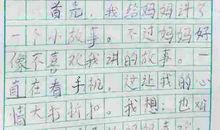 首先，我给妈妈讲了
一个小故事。不过妈妈好
像不喜欢我讲的故事。一
直在看手机，这让我的心
情大打折扣。我想：也